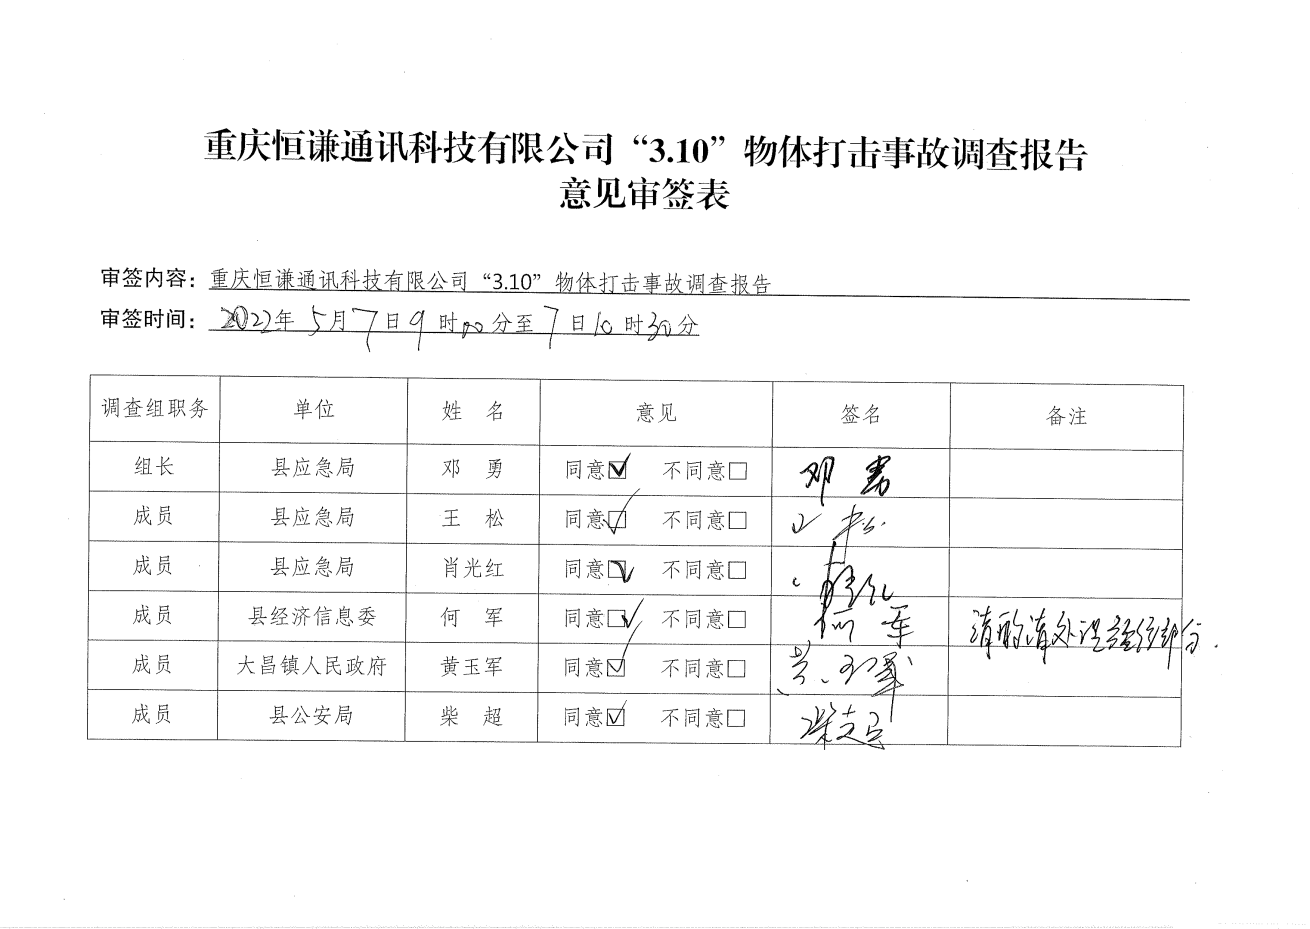 重庆恒谦通讯科技有限公司“3.10”物体打击事故调查报告
意见审签表
审签内容：重庆恒谦通讯科技有限公司“3.10”物体打击事故调查报告
审签时间：2022年5月7日9时00分至7日10时30分
调查组职务 单位 姓 名 意见 签名 备注
组长 县应急局 邓 勇 同意☑ 不同意□ 邓勇
成员 县应急局 王 松 同意☑ 不同意□ 王松
成员 县应急局 肖光红 同意☑ 不同意□ 肖光红
成员 县经济信息委 何 军 同意☑ 不同意□ 何军 请酌情处理
成员 大昌镇人民政府 黄玉军 同意☑ 不同意□ 黄玉军
成员 县公安局 柴 超 同意☑ 不同意□ 柴超